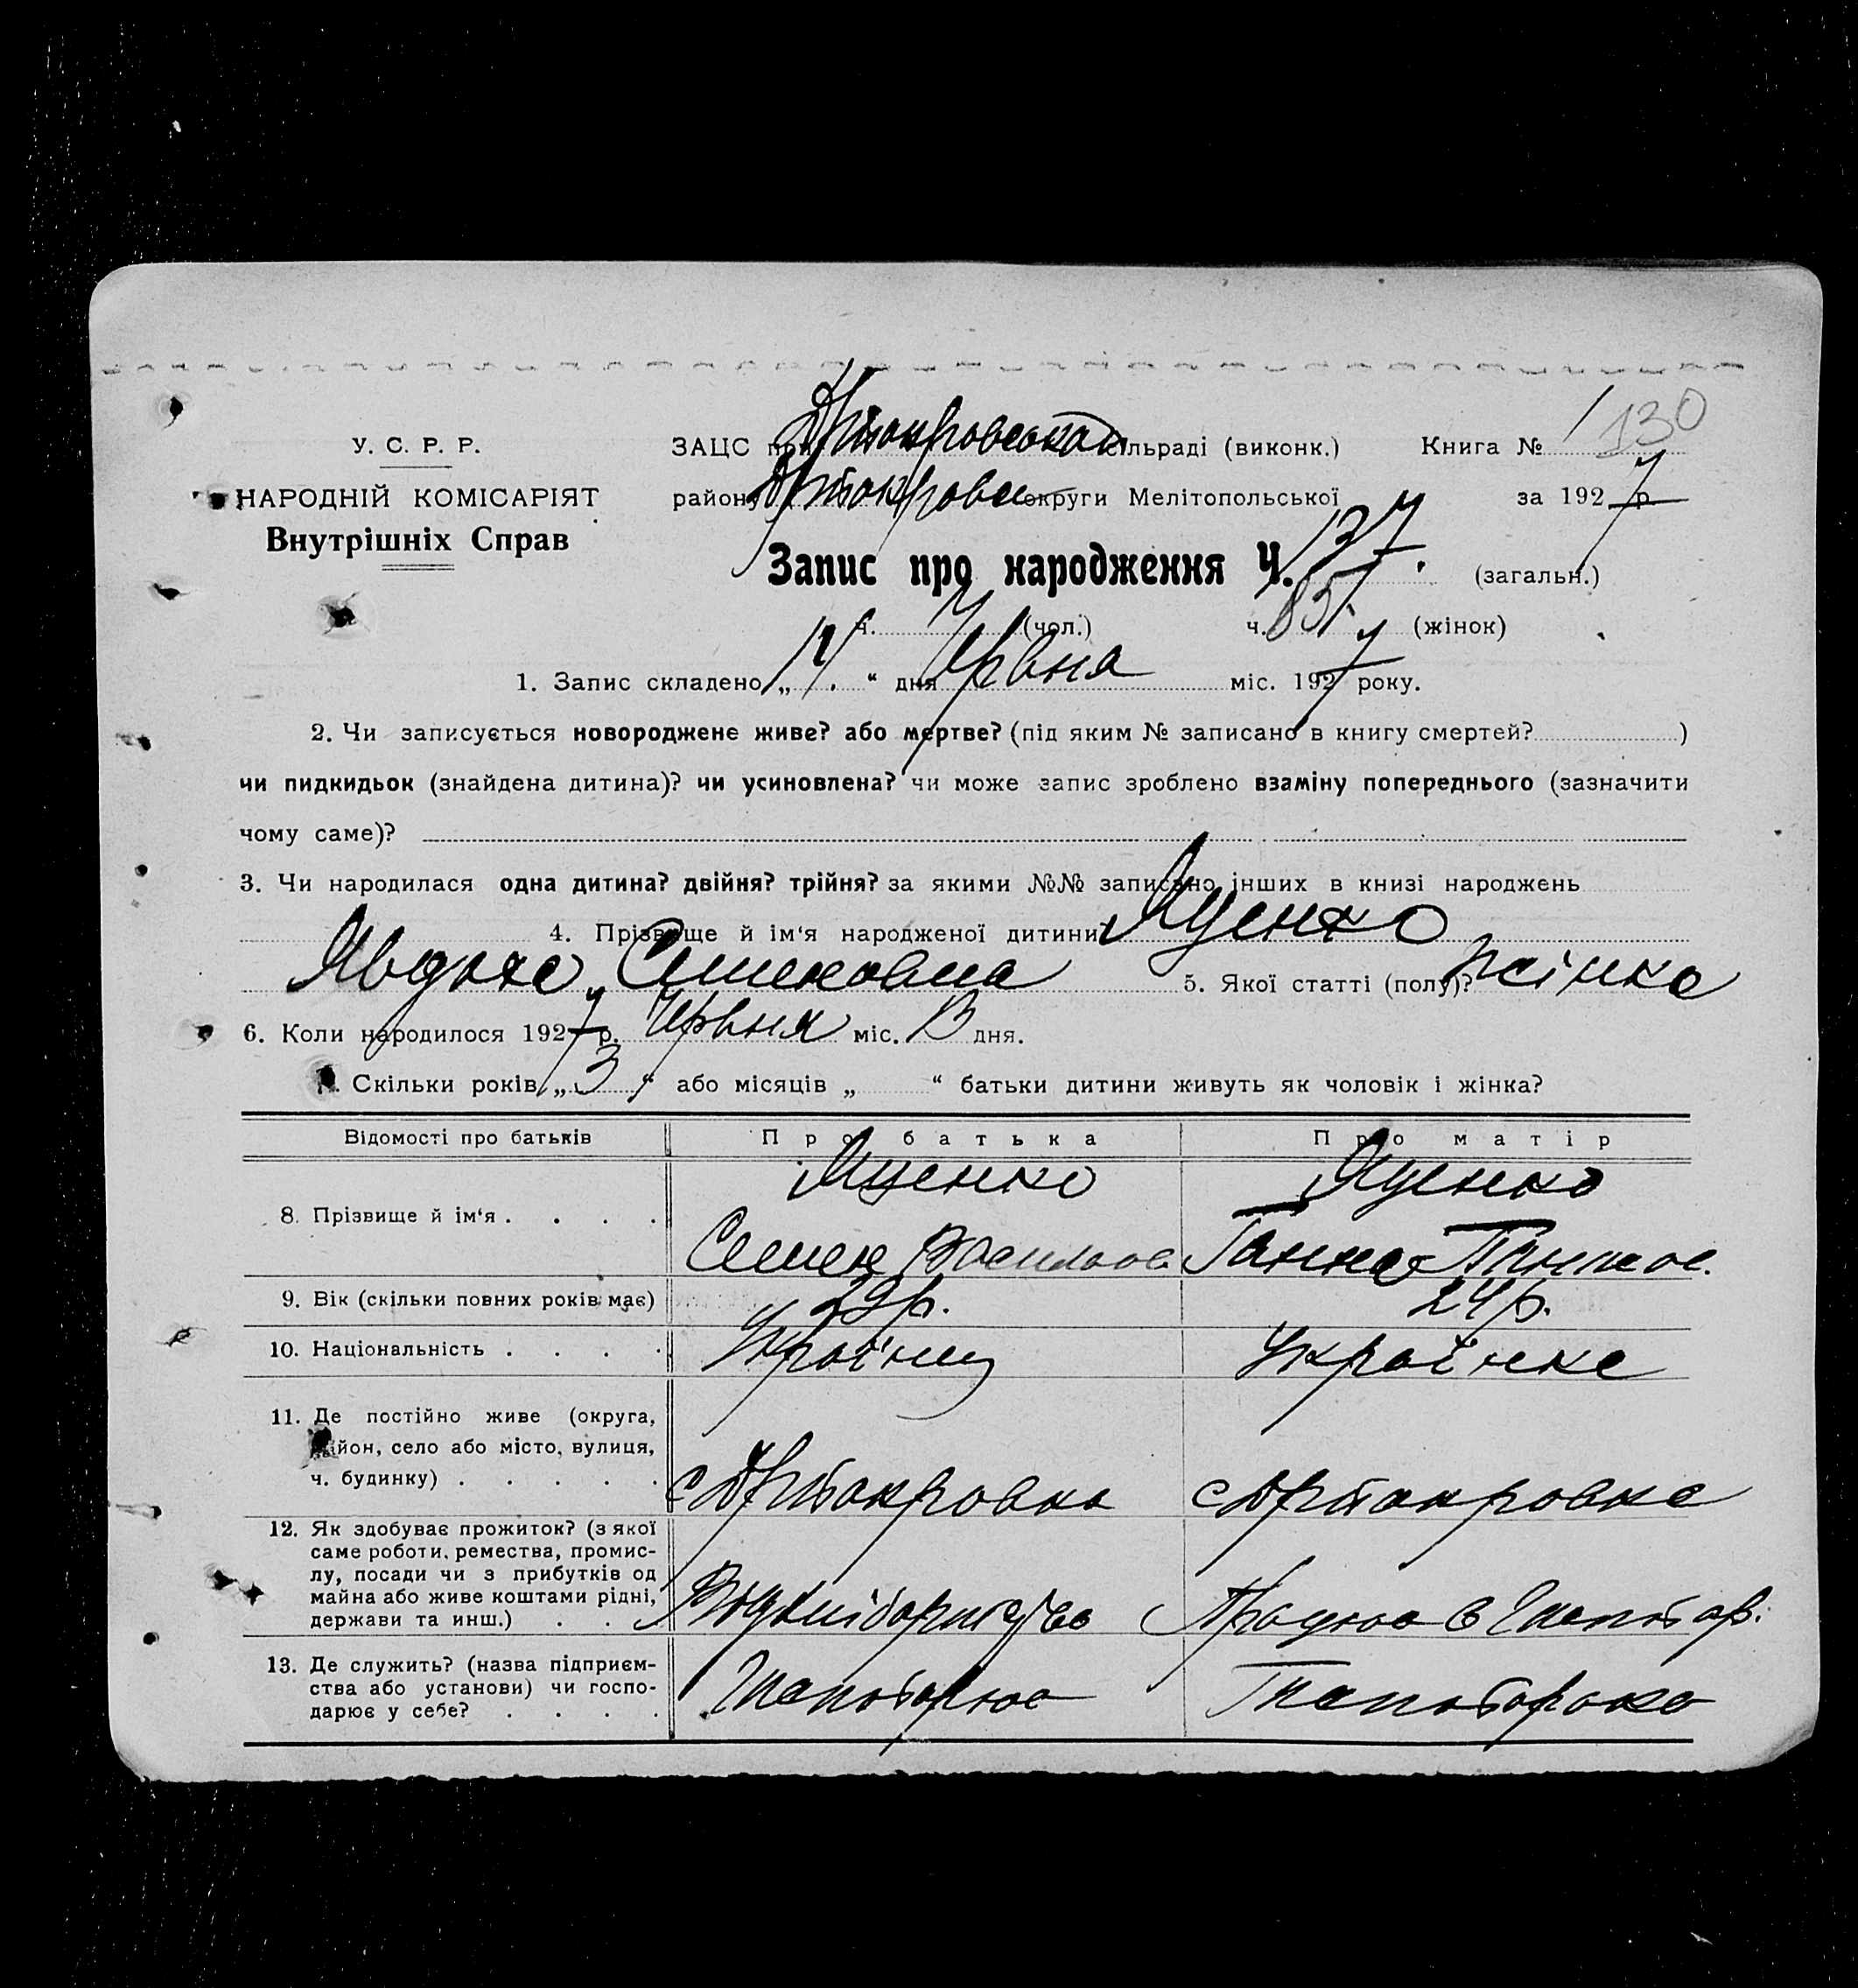 130
У. С. Р. Р. ЗАЦС при сільраді (виконк.) Книга № 1
НАРОДНІЙ КОМІСАРІЯТ району округи Мелітопольської за 1927 р.
Внутрішніх Справ
Запис про народження Ч. 137. (загальн.)
ч. (чол.) ч. 85. (жінок)
1. Запис складено „ “ дня Червня міс. 1927 року.
2. Чи записується новороджене живе? або мертве? (під яким № записано в книгу смертей? )
чи пидкидьок (знайдена дитина)? чи усиновлена? чи може запис зроблено взаміну попереднього (зазначити
чому саме)?
3. Чи народилася одна дитина? двійня? трійня? за якими №№ записано інших в книзі народжень
4. Прізвище й ім‘я народженої дитини Яценко
Явдоха Семеновна 5. Якої статті (полу)? жінка
6. Коли народилося 1927 р. Червня міс. дня.
7. Скільки років „ 3 “ або місяців „ “ батьки дитини живуть як чоловік і жінка?
Відомості про батьків Про батька Про матір
Яценко Яценко
8. Прізвище й ім‘я . . . .
Семен Васильов Ганна
9. Вік (скільки повних років має) 29 р. 24 р.
10. Національність . . . . Українец Українка
11. Де постійно живе (округа,
район, село або місто, вулиця,
ч. будинку) . . . . .
12. Як здобуває прожиток? (з якої
саме роботи, ремества, промис-
лу, посади чи з прибутків од
майна або живе коштами рідні,
держави та инш.) . . .
13. Де служить? (назва підприєм-
ства або установи) чи госпо-
дарює у себе? . . . .